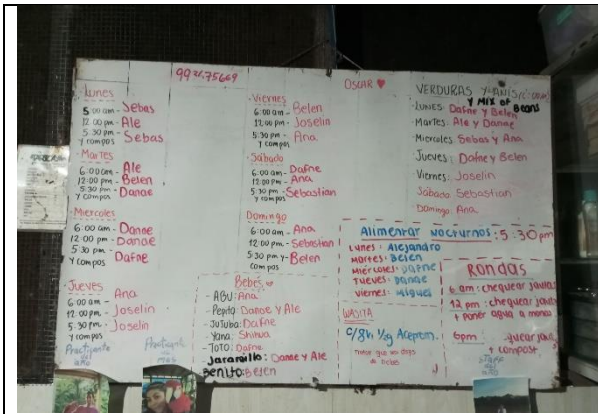 Lunes
5:00 am - Sebas
12:00 pm - Ale
5:30 pm - Sebas
y compos
Martes
6:00 am - Ale
12:00 pm - Belen
5:30 pm - Danae
y compos
Miercoles
6:00 am - Danae
12:00 pm - Danae
5:30 pm - Dafne
y compos
Jueves
6:00 am - Ana
12:00 pm - Joselin
5:30 pm - Joselin
y compos
Practicante
del
año
Practicante
mes
Viernes
6:00 am - Belen
12:00 pm - Joselin
5:30 pm - Ana
y compos
Sabado
6:00 am - Dafne
12:00 pm - Ana
5:30 pm - Sebastian
y compos
Domingo
6:00 am - Ana
12:00 pm - Sebastian
5:30 pm y - Belen
compos
Bebés
- ABU: Ana
- Pepita: Danae y Ale
- JuJuba: Dafne
- Yana: Shihua
- TOTO: Dafne
Jaramillo: Danae y Ale
Benito: Belen
OSCAR
VERDURAS Y ANIS
Y MIX OF Beans
LUNES: Dafne y Belen
Martes: Ale y Danae
Miercoles: Sebas y Ana
Jueves: Dafne y Belen
Viernes: Joselin
Sabado: Sebastian
Domingo: Ana
Alimentar Nocturnos: 5:30 pm
Lunes: Alejandro
Martes: Belen
Miércoles: Dafne
Jueves: Danae
Viernes: Miguel
WASITA
c/8h 1/2g Aceprom.
Rondas
6 am: chequear jaulas
12 pm: chequear jaulas
+ poner agua a monos
6pm
+ compost